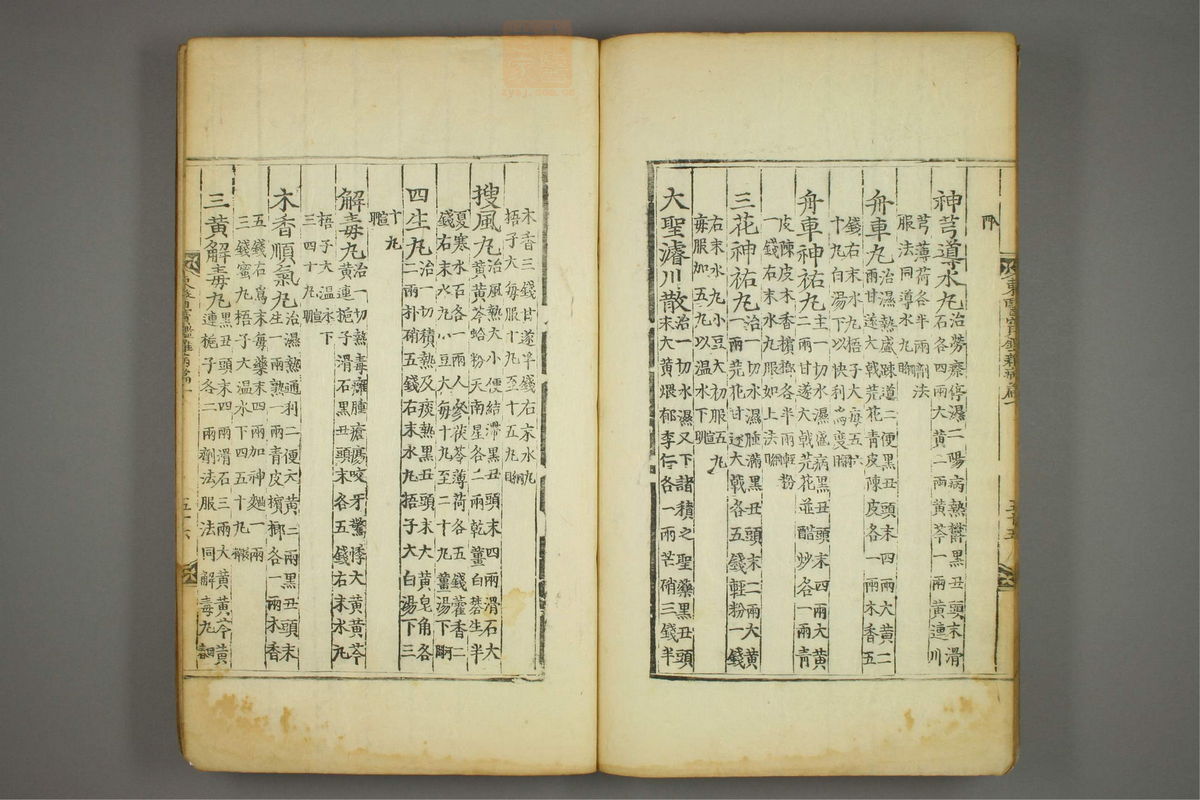 神芎導水丸 治勞瘵停濕二陽病熱欝黑丑頭末滑
石各四兩大黃二兩黃芩一兩黃連川
芎薄荷各半兩劑法
服法同導水丸
舟車丸 治濕熱盛疎道二便黑丑頭末四兩大黃二
兩甘遂大戟芫花青皮陳皮各一兩木香五
錢右末水丸梧子大每五六
十丸白湯下以快利為度
舟車神祐丸 主一切水濕爲病黑丑頭末四兩大黃
二兩甘遂大戟芫花並醋炒各一兩青
皮陳皮木香檳榔各半兩輕粉
一錢右末水丸服如上法
三花神祐丸 治一切水濕腫滿黑丑頭末二兩大黃
一兩芫花甘遂大戟各五錢輕粉一錢
右末水丸小豆大初服五丸
每服加五丸以温水下
大聖濬川散 治一切水濕又下諸積之聖藥黑丑頭
末大黃煨郁李仁各一兩芒硝三錢半
木香三錢甘遂半錢右末水丸
梧子大每服十丸至十五丸
搜風丸 治風熱大小便結滯黑丑頭末四兩滑石大
黃黃芩蛤粉天南星各二兩乾薑白礬生半
夏寒水石各一兩人參茯苓薄荷各五錢藿香二
錢右末水丸小豆大每十丸至二十丸薑湯下
四生丸 治一切積熱及痰熱黑丑頭末大黃皂角各
二兩朴硝五錢右末水丸梧子大白湯下三
十丸
解毒丸 治一切熱毒癰腫瘡瘍咬牙驚悸大黃黃芩
黃連梔子滑石黑丑頭末各五錢右末水丸
梧子大温水下
三四十丸
木香順氣丸 治濕熱通利二便大黃二兩黑丑頭末
生一兩熟一兩青皮檳榔各一兩木香
五錢右爲末每藥末四兩加神麴一兩
三錢蜜丸梧子大温水下四五十丸
三黃解毒丸 黑丑頭末四兩滑石三兩大黃黃芩黃
連梔子各二兩劑法服法同解毒丸